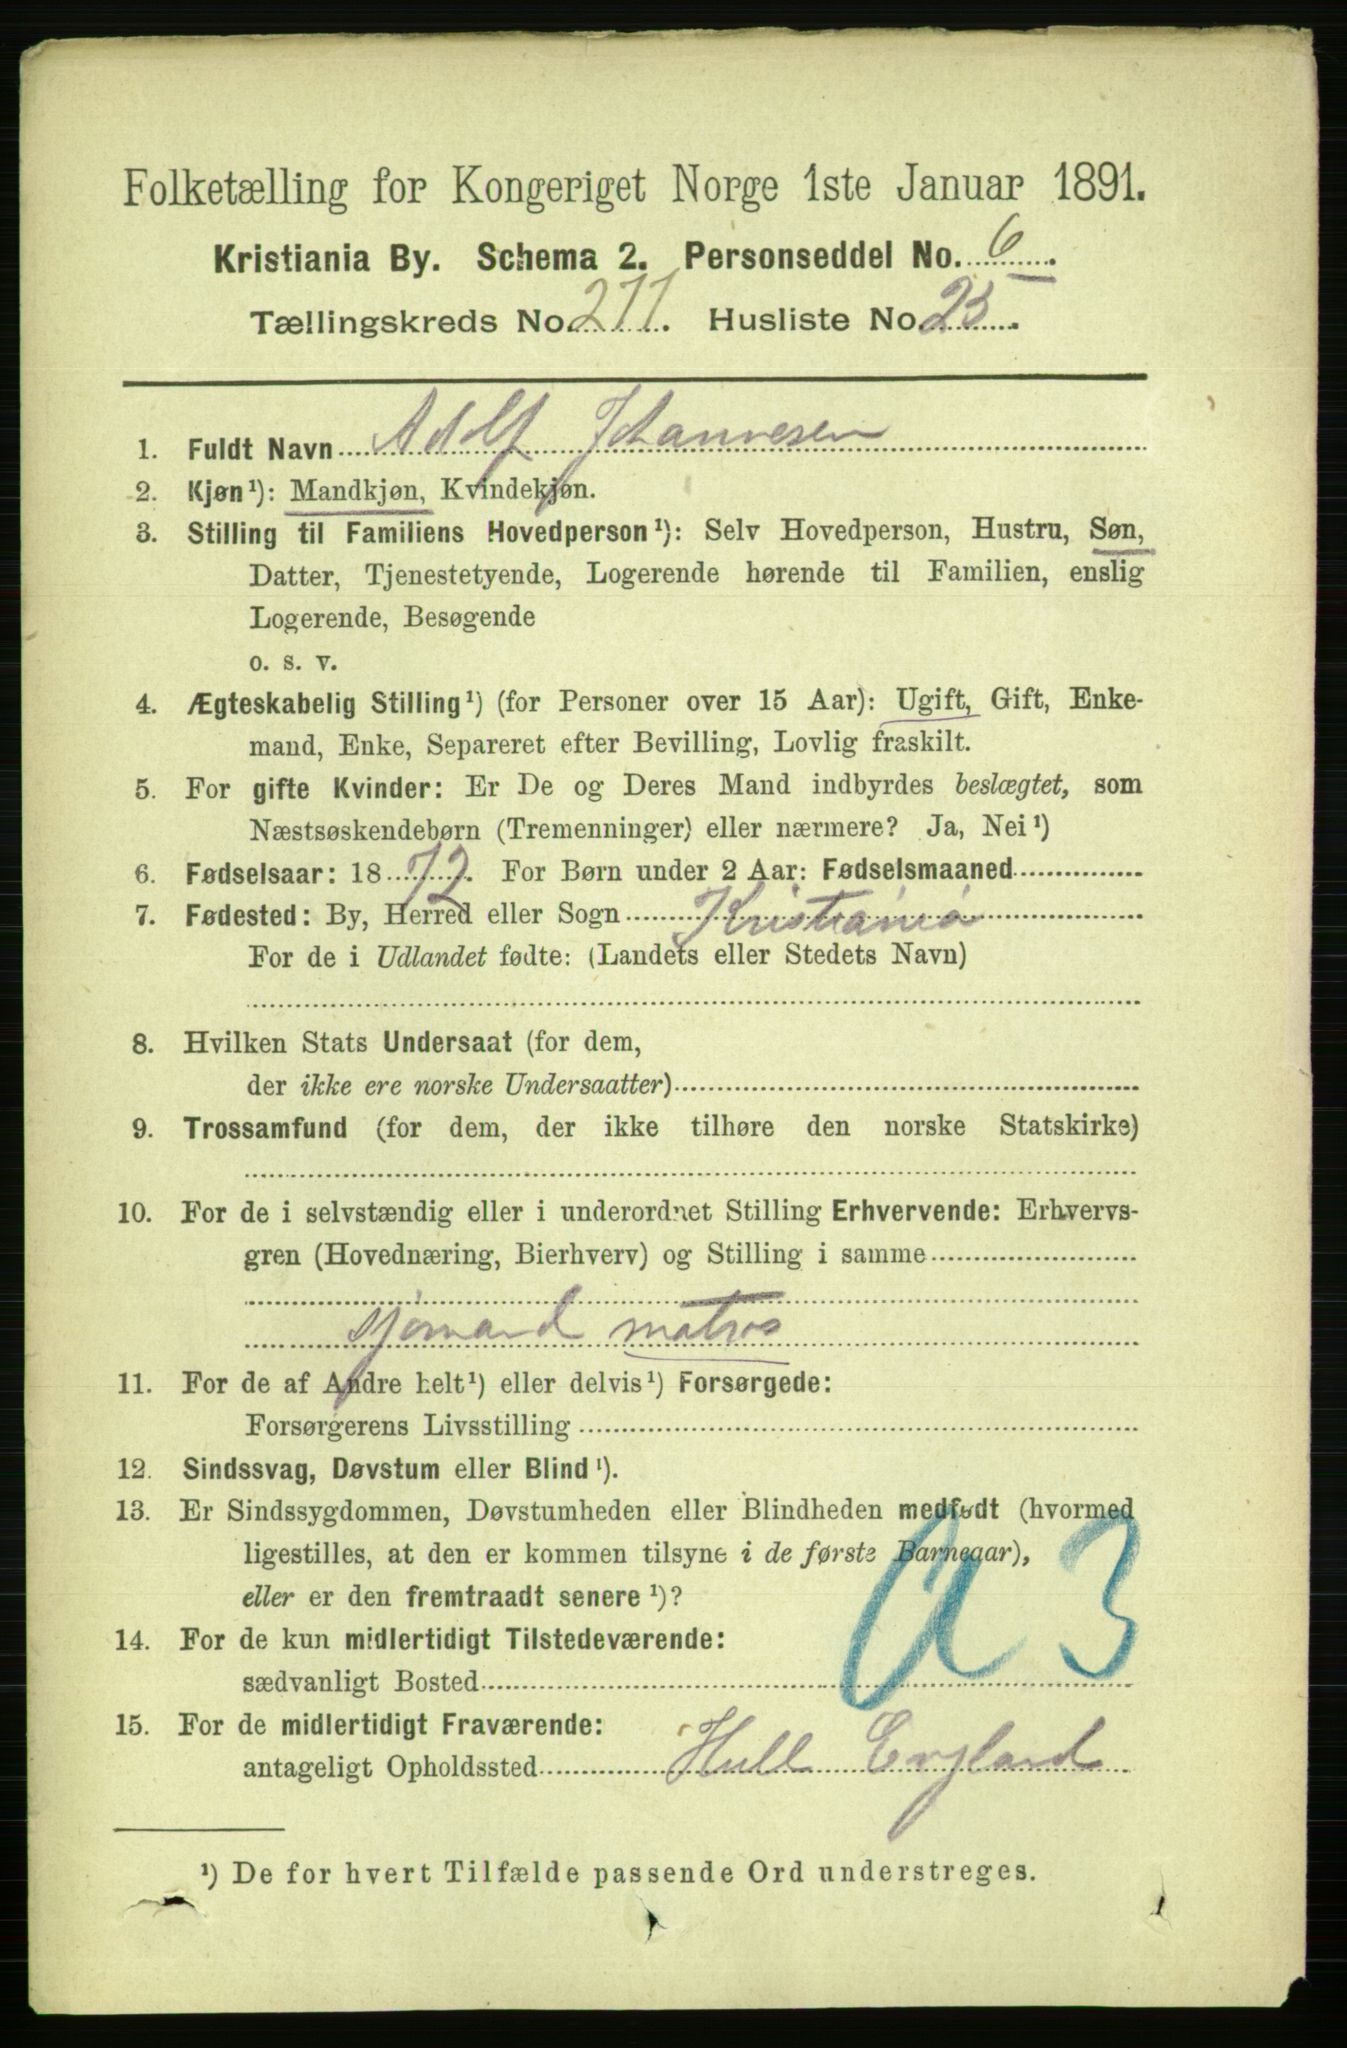 Folketælling for Kongeriget Norge 1ste Januar 1891.
Kristiania By. Schema 2. Personseddel No. 6.
Tællingskreds No. 211. Husliste No. 23.
1. Fuldt Navn Adolf Johannesen
2. Kjøn¹): Mandkjøn, Kvindekjøn.
3. Stilling til Familiens Hovedperson¹): Selv Hovedperson, Hustru, Søn,
Datter, Tjenestetyende, Logerende hørende til Familien, enslig
Logerende, Besøgende
o. s. v.
4. Ægteskabelig Stilling¹) (for Personer over 15 Aar): Ugift, Gift, Enke-
mand, Enke, Separeret efter Bevilling, Lovlig fraskilt.
5. For gifte Kvinder: Er De og Deres Mand indbyrdes beslægtet, som
Næstsøskendebørn (Tremenninger) eller nærmere? Ja, Nei¹)
6. Fødselsaar: 1872. For Børn under 2 Aar: Fødselsmaaned
7. Fødested: By, Herred eller Sogn Kristiania
For de i Udlandet fødte: (Landets eller Stedets Navn)
8. Hvilken Stats Undersaat (for dem,
der ikke ere norske Undersaatter)
9. Trossamfund (for dem, der ikke tilhøre den norske Statskirke)
10. For de i selvstændig eller i underordnet Stilling Erhvervende: Erhvervs-
gren (Hovednæring, Bierhverv) og Stilling i samme
sjømand matros
11. For de af Andre helt¹) eller delvis¹) Forsørgede:
Forsørgerens Livsstilling
12. Sindssvag, Døvstum eller Blind¹).
13. Er Sindssygdommen, Døvstumheden eller Blindheden medfødt (hvormed
ligestilles, at den er kommen tilsyne i de første Barneaar),
eller er den fremtraadt senere¹)?
a 3
14. For de kun midlertidigt Tilstedeværende:
sædvanligt Bosted
15. For de midlertidigt Fraværende:
antageligt Opholdssted Hull England
¹) De for hvert Tilfælde passende Ord understreges.